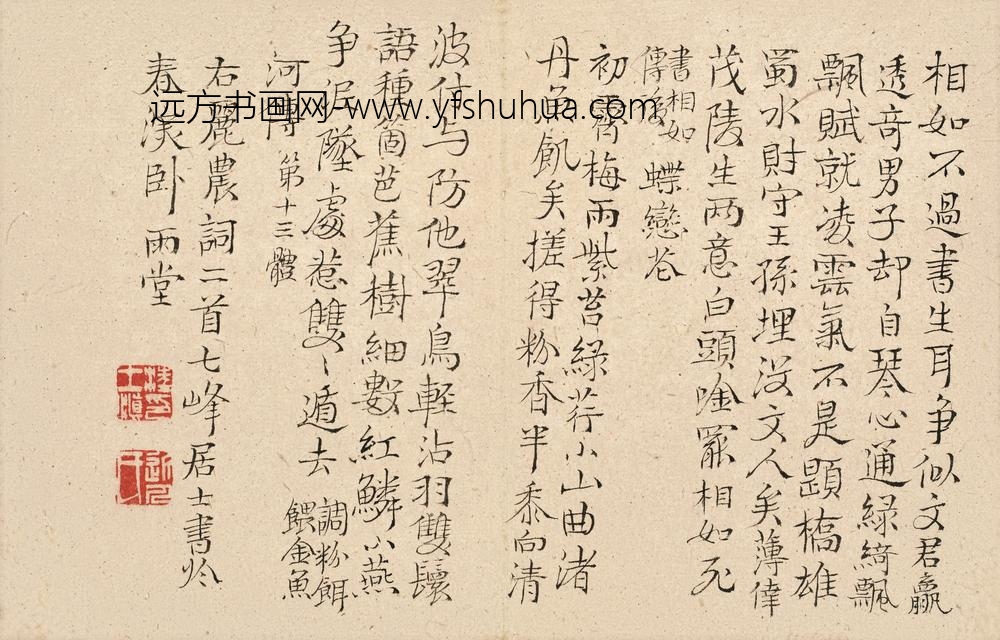 相如不過書生耳争似文君贏
透奇男子却自琴心通綠綺飄
飄賦就凌雲氣不是題橋雄
蜀水財守王孫埋沒文人矣薄倖
茂陵生两意白頭唫罷相如死
書相如
傳後 蝶戀花
初霄梅雨紫苔綠荇小山曲渚
丹魚飢矣搓得粉香半黍向清
波付与防他翠鳥輕沾羽雙鬟
語種箇芭蕉樹細數紅鱗小燕
争泥墜處惹雙〻遁去 調粉餌
餵金魚
河傳 第十三體
右麗農詞二首七峰居士書於
春溪卧雨堂
远方书画网-www.yfshuhua.com